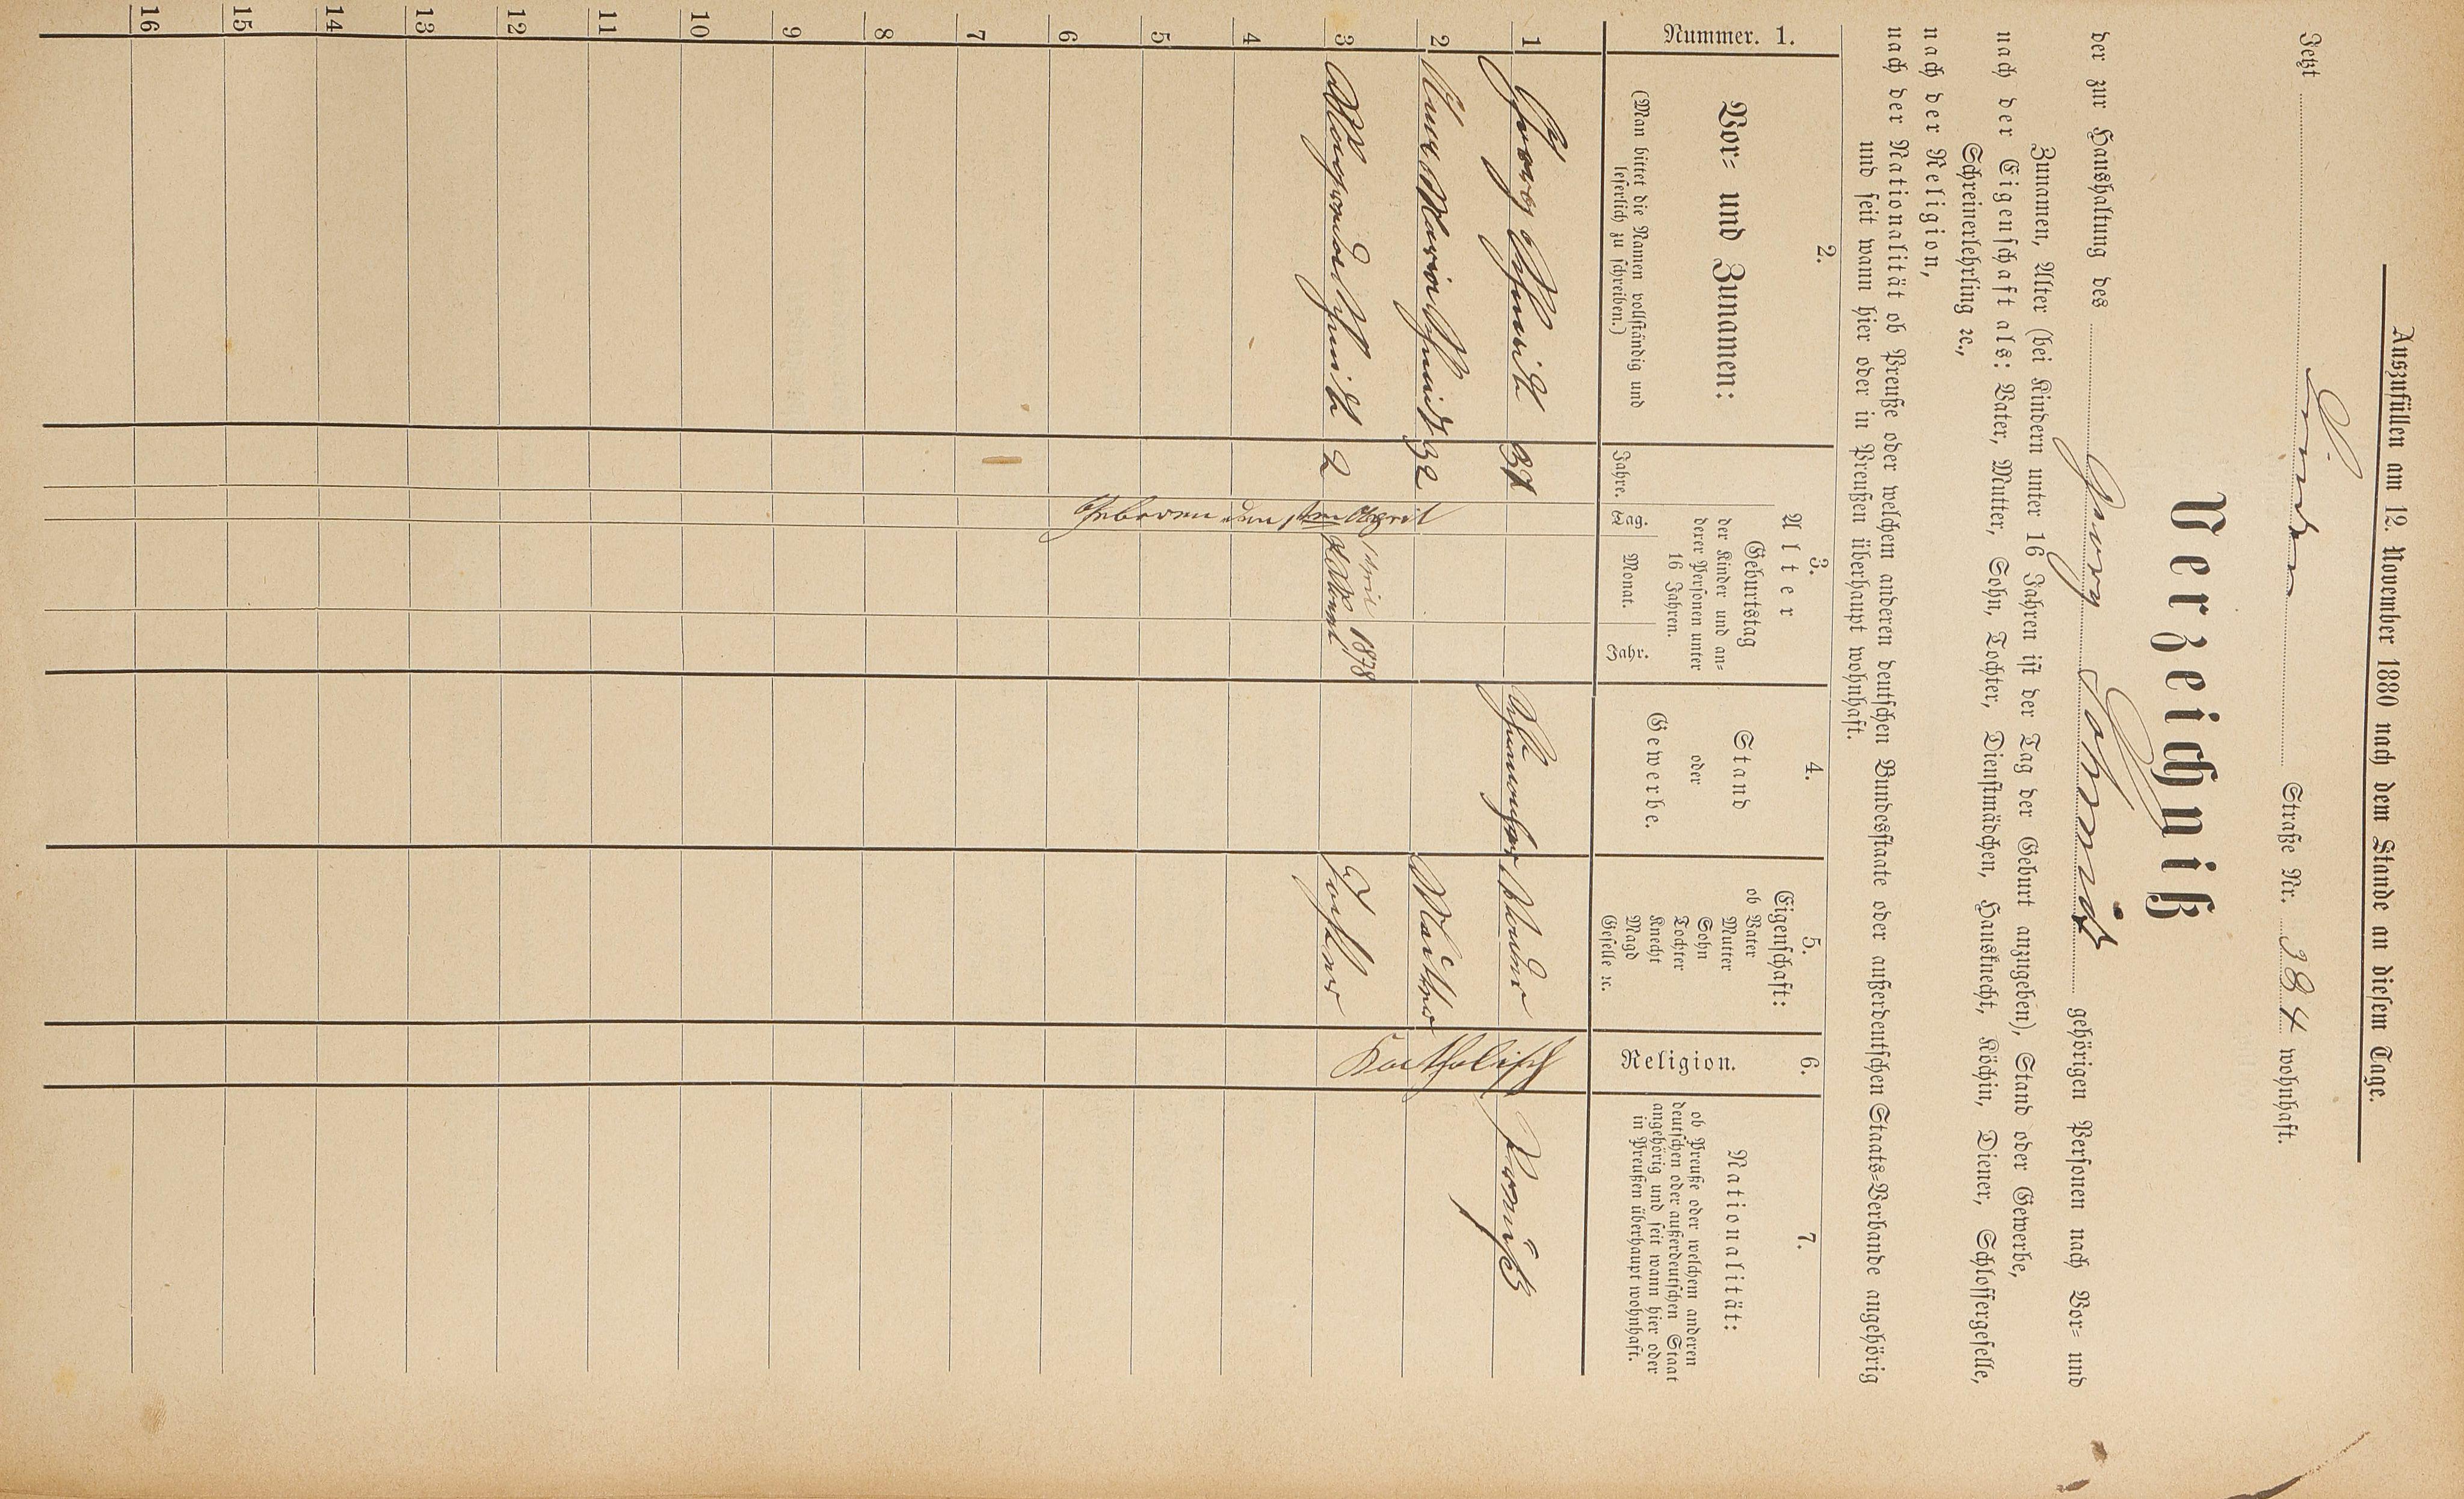 Auszufüllen am 12. November 1880 nach dem Stande an diesem Tage.
Jetzt Straße Nr. 384 wohnhaft.
Verzeichniß
der zur Haushaltung des Georg Schmidt gehörigen Personen nach Vor- und
Zunamen, Alter (bei Kindern unter 16 Jahren ist der Tag der Geburt anzugeben), Stand oder Gewerbe,
nach der Eigenschaft als: Vater, Mutter, Sohn, Tochter, Dienstmädchen, Hausknecht, Köchin, Diener, Schlossergeselle,
Schreinerlehrling ꝛc.,
nach der Religion,
nach der Nationalität ob Preuße oder welchem anderen deutschen Bundesstaate oder außerdeutschen Staats-Verbande angehörig
und seit wann hier oder in Preußen überhaupt wohnhaft.
Nummer. 1.
2.
Vor- und Zunamen:
(Man bittet die Namen vollständig und
leserlich zu schreiben.)
3.
Alter
Jahre.
Geburtstag
der Kinder und an-
derer Personen unter
16 Jahren.
Tag. Monat. Jahr.
4.
Stand
oder
Gewerbe.
5.
Eigenschaft:
ob Vater
Mutter
Sohn
Tochter
Knecht
Magd
Geselle ꝛc.
6.
Religion.
7.
Nationalität:
ob Preuße oder welchem anderen
deutschen oder außerdeutschen Staat
angehörig und seit wann hier oder
in Preußen überhaupt wohnhaft.
1 Georg Schmidt 37 Schumacher Vader Katholisch
2 Maria Schmidt 32 Mutter
3 Schmidt 2 April 1878 Tochter
Geboren den April
4
5
6
7
8
9
10
11
12
13
14
15
16